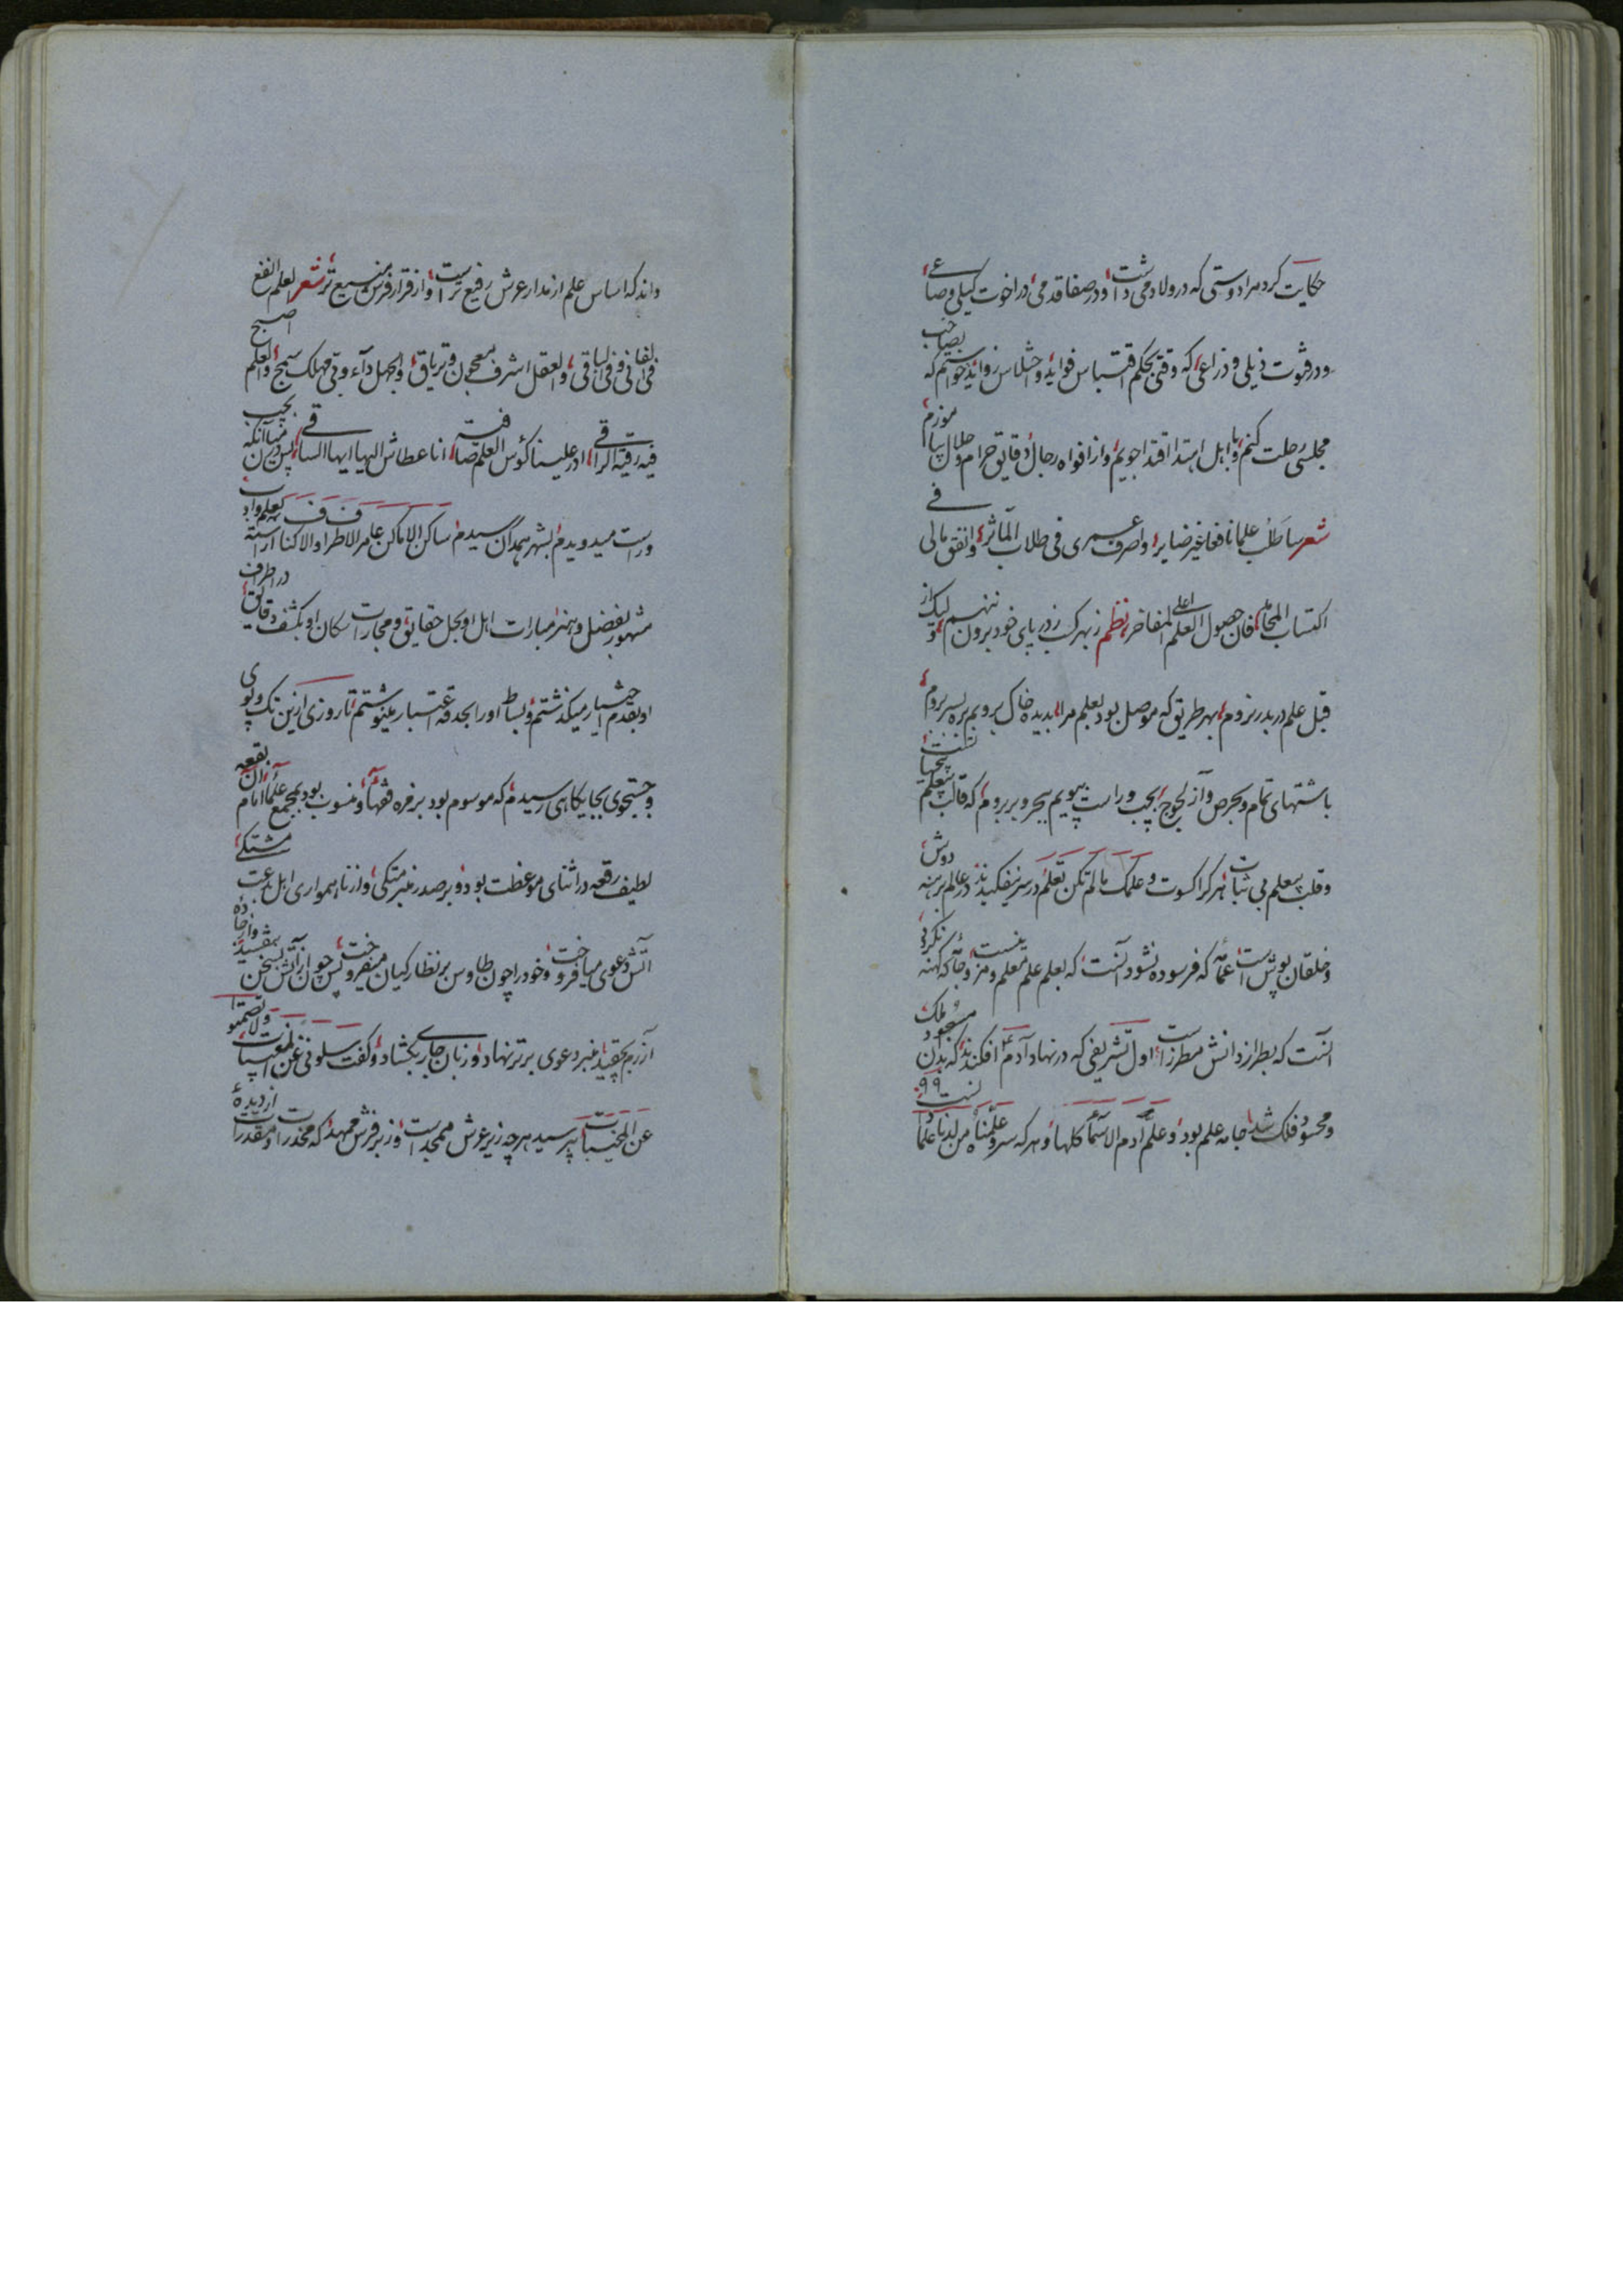 حکایت کرد مرا دوستی که در ولا دمی داشت و در صفا قدمی در اخوت کیلی و صاعی
و در فتوت ذیلی و ذراعی که وقتی بحکم اقتباس فواید و اختلاس زواید خواستم که بصاحب
مجلسی رحلت کنم و با اهل ابتدا اقتدا جویم و از افواه رجال دقایق حرام و حلال بیاموزم
شعر ساطلب علما نافعا غیر ضایر واصرف عمری فی طلاب المآثر وانفق مالی فی
اکتساب المحامد فان حصول العلم اعلی المفاخر نظم ز بهر کسب ز در پای خود برون ننهم ولیک از
قبل علم در بدر بروم بهر طریق که موصل بود بعلم مرا بدیده خاک بروبم بره بسر بروم
باشتهای تمام و بحرص و آز لجوج بچپ و راست بپویم ببحر و بر بروم که قالب بیعلم
و قلب بیعلم بی ثبات هر کرا کسوت و علمک ما لم تکن تعلم در سر نیفکنید در عالم برهنه دوش
و خلقان پوش است عمامه که فرسوده نشود آنست که بعلم علم معلم و جامه که کهنه نگردد
آنست که بطراز دانش مطرز است اول تشریفی که در نهاد آدم افکندند که بدان مسجود ملک
و محسود فلک شد جامه علم بود و علم آدم الاسماء کلها و هر که سر و علمناه من لدنا علما
داند که اساس علم از مدار عرش رفیع تر است و از قرار فرش وسیع تر شعر العلم انفع
فی الفانی و فی الباقی والعقل اشرف معجون و تریاق والجهل داء دوی مهلک سمج والعلم اصبح
فیه رقیة الراقی ادر علینا کؤس العلم صافیة انا عطاش الیها ایها الساقی پس در میان آنکه بچپ
و راست میدویدم بشهر همدان رسیدم ساکن الاماکن عامر الاطراف والاکناف آراسته بعلم و ادب
مشهور بفضل و هنر مبارات اهل او بحل حقایق و مجارات سکان او بکشف دقایق در اطراف
او بقدم اختیار میگذشتم و بساط او را بحدقه اعتبار مینوشتم تا روزی ازین تک و پوی
و جستجوی بجایگاهی رسیدم که موسوم بود بزمره فقها و منسوب بود بمجمع علما امام آن بقعه
لطیف رقعه در اثنای موعظت بود و بر صدر منبر متکی و از ناهمواری اهل بدعت مشتکی
آتش دعوی میافروخت و خود را چون طاوس بر نظارکیان میفروخت پس چون از آتش سخن
آزرم منبر دعوی برتر نهاد و زبان جاری بگشاد و گفت سلونی عن المغیبات ولا تصمتوا
عن المخبیات بپرسید هر چه زیر عرش ممجد است و زبر فرش ممهد که مخدرات و مقدرات از دیده